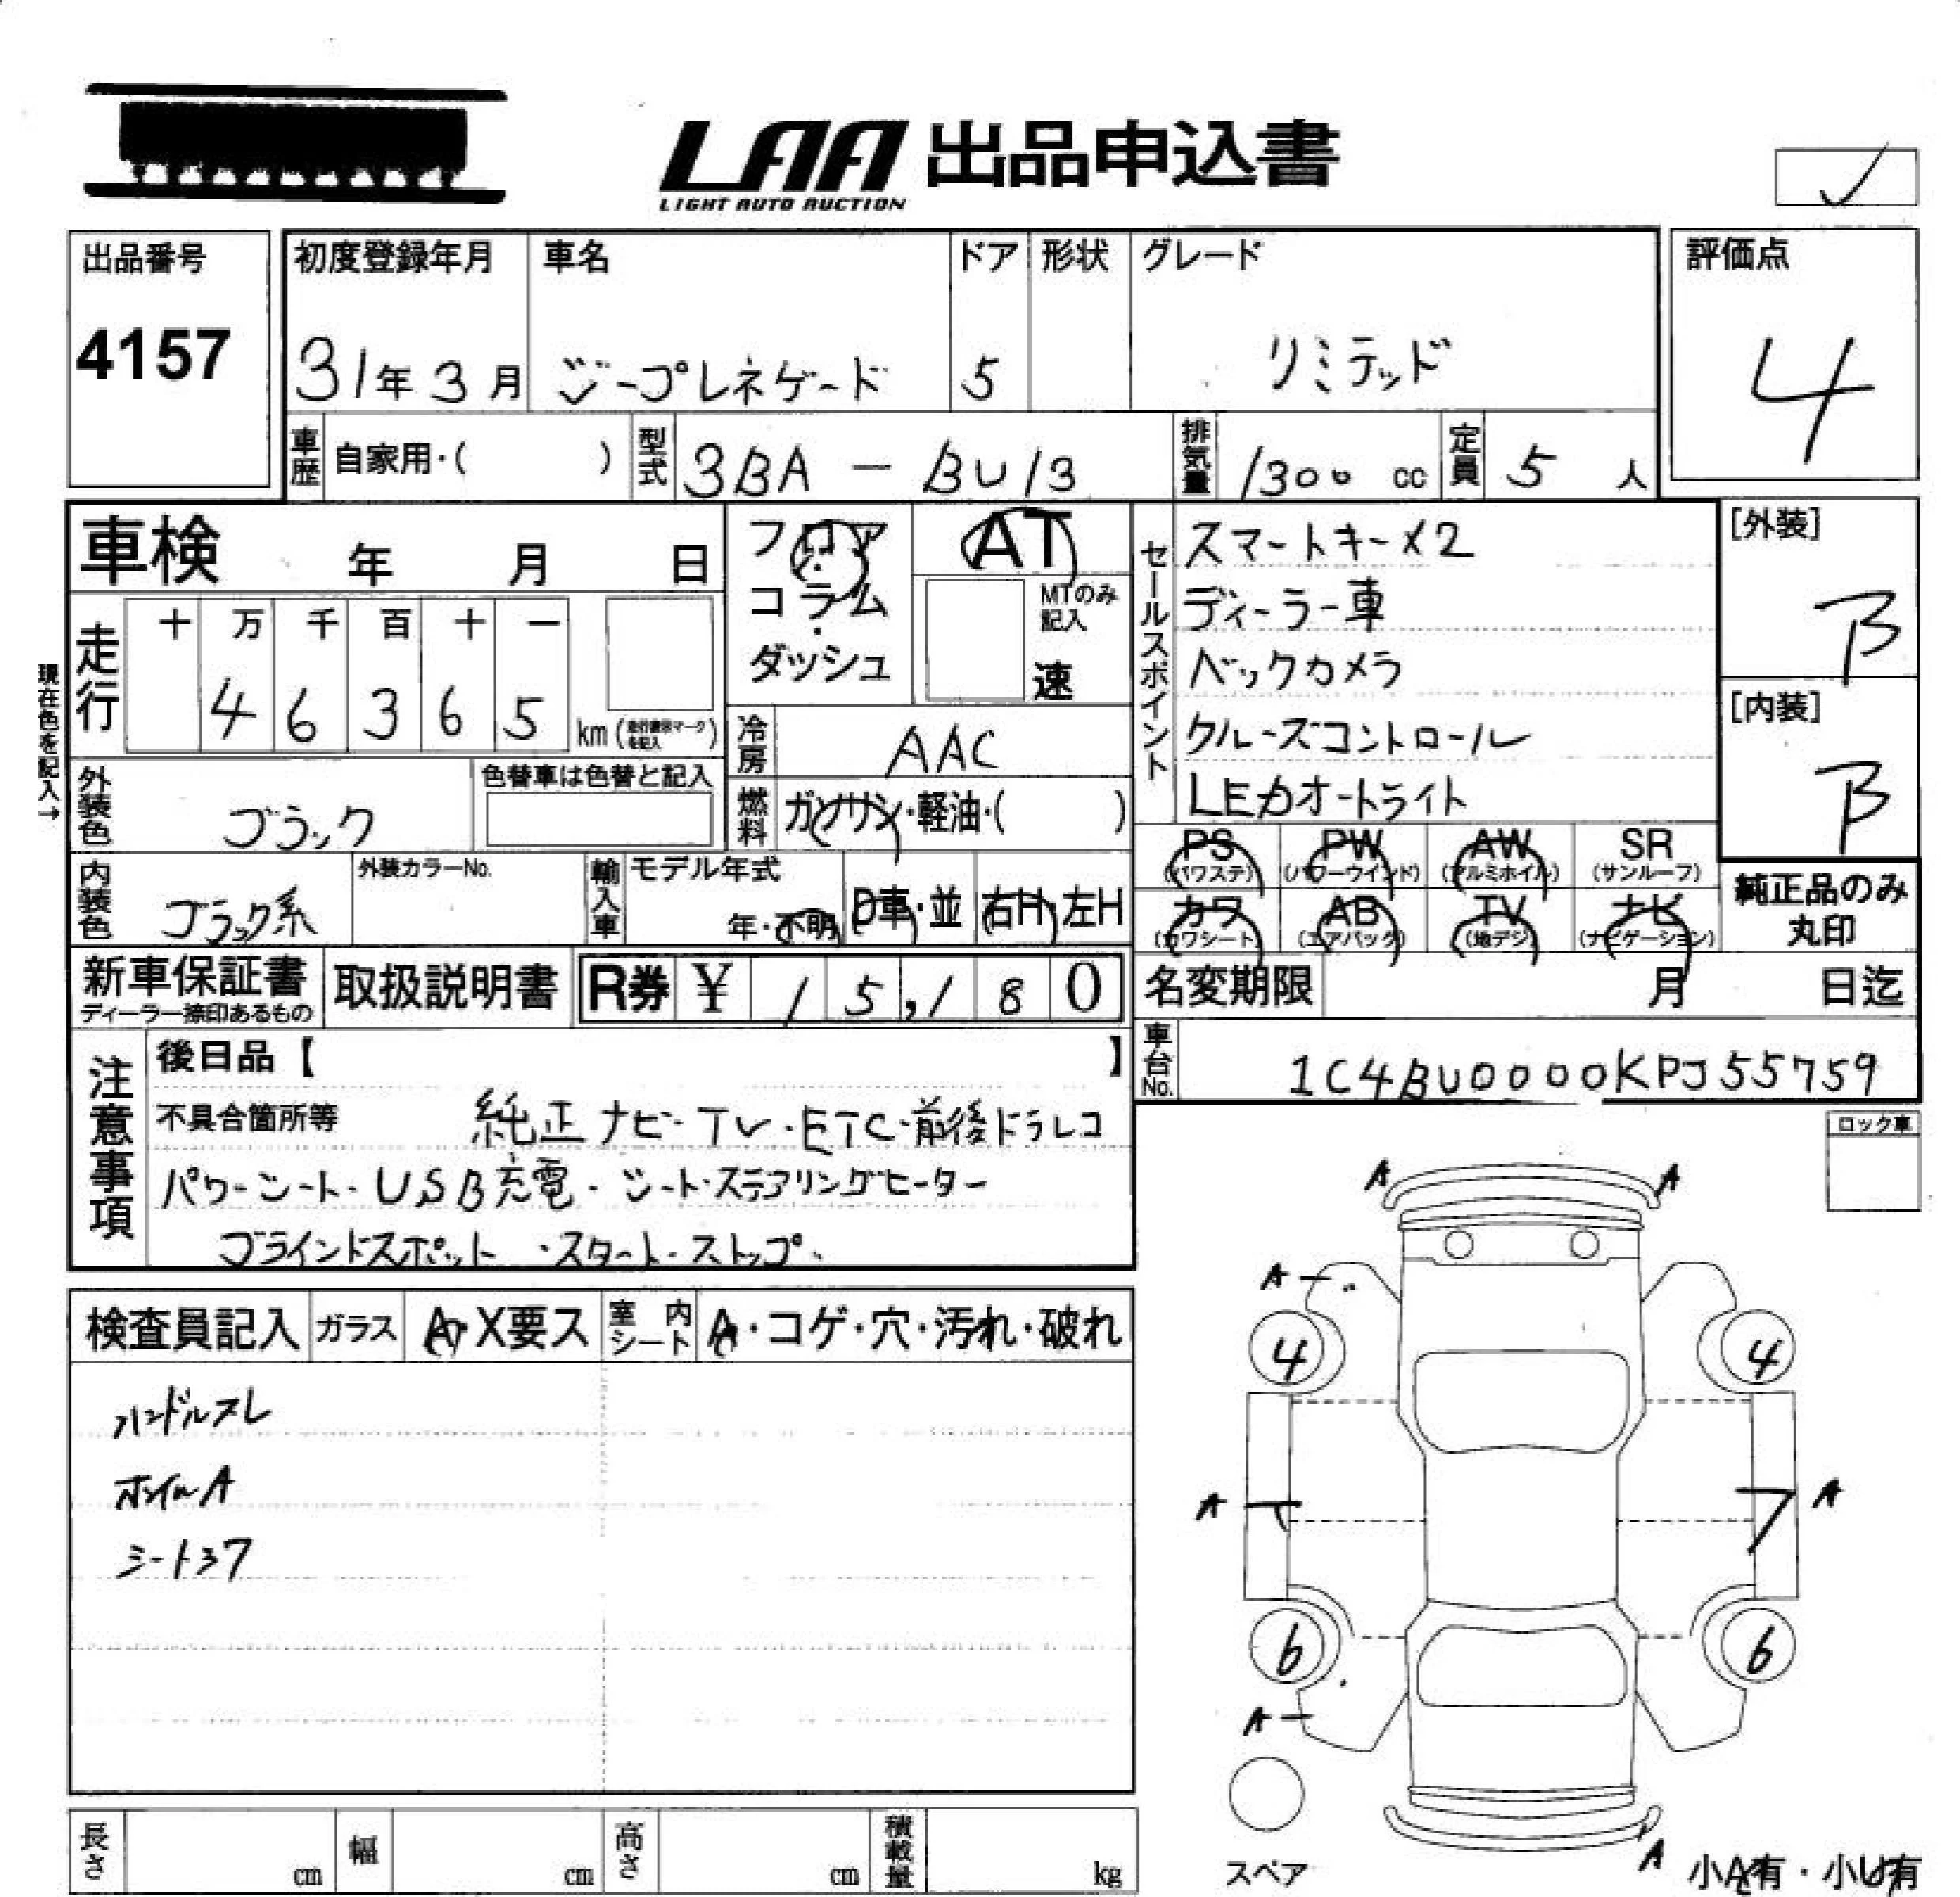 LAA 出品申込書
LIGHT AUTO AUCTION
出品番号
4157
初度登録年月 車名 ドア 形状 グレード
31年 3月 ジープレネゲード 5 リミテッド
評価点
4
車歴 自家用・( ) 型式 3BA — BU13 排気量 1300 cc 定員 5 人
車検 年 月 日
フロア・コラム・ダッシュ
AT
MTのみ記入
速
セールスポイント
スマートキー×2
ディーラー車
バックカメラ
クルーズコントロール
LEDオートライト
[外装]
B
[内装]
B
現在色を記入→
走行 十 万 千 百 十 一
4 6 3 6 5 km
冷房 AAC
外装色 ブラック 色替車は色替と記入
燃料 ガソリン・軽油・( )
内装色 ブラック系 外装カラーNo. 輸入車 モデル年式 年・不明 D車・並 右H・左H
PS (パワステ) PW (パワーウインド) AW (アルミホイル) SR (サンルーフ)
カワ (カワシート) AB (エアバック) TV (地デジ) ナビ (ナビゲーション)
純正品のみ丸印
新車保証書 ディーラー捺印あるもの 取扱説明書 R券 ¥ 15,180
名変期限 月 日迄
車台No. 1C4BU0000KPJ55759
注意事項
後日品【 】
不具合箇所等 純正ナビ・TV・ETC・前後ドラレコ
パワーシート・USB充電・シート・ステアリングヒーター
ブラインドスポット ・スタート・ストップ・
ロック車
検査員記入 ガラス A・X要ス 室内シート A・コゲ・穴・汚れ・破れ
ハンドルスレ
ホイルA
シートシワ
A A
A
4 4
A A
6 6
A
A
スペア
小A有・小U有
長さ cm 幅 cm 高さ cm 積載量 kg